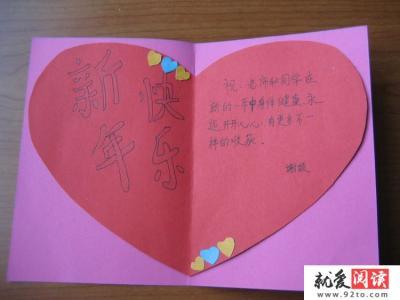 新年
快乐
祝：老师和同学在
新的一年中身体健康，永
远开开心心，有更多不一
样的收获。
谢婷
就爱阅读
www.92to.com